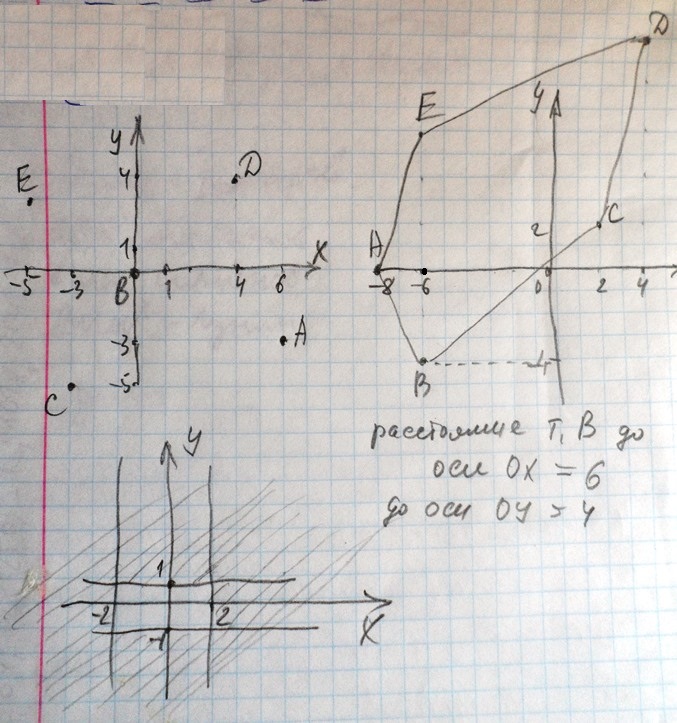 y
4
E
D
1
x
-5
-3
B
1
4
6
-3
A
-5
C
D
E
y
2
C
A
-8
-6
0
2
4
-4
B
расстояние т. В до
оси OX = 6
до оси OY = 4
y
1
-2
2
-1
X